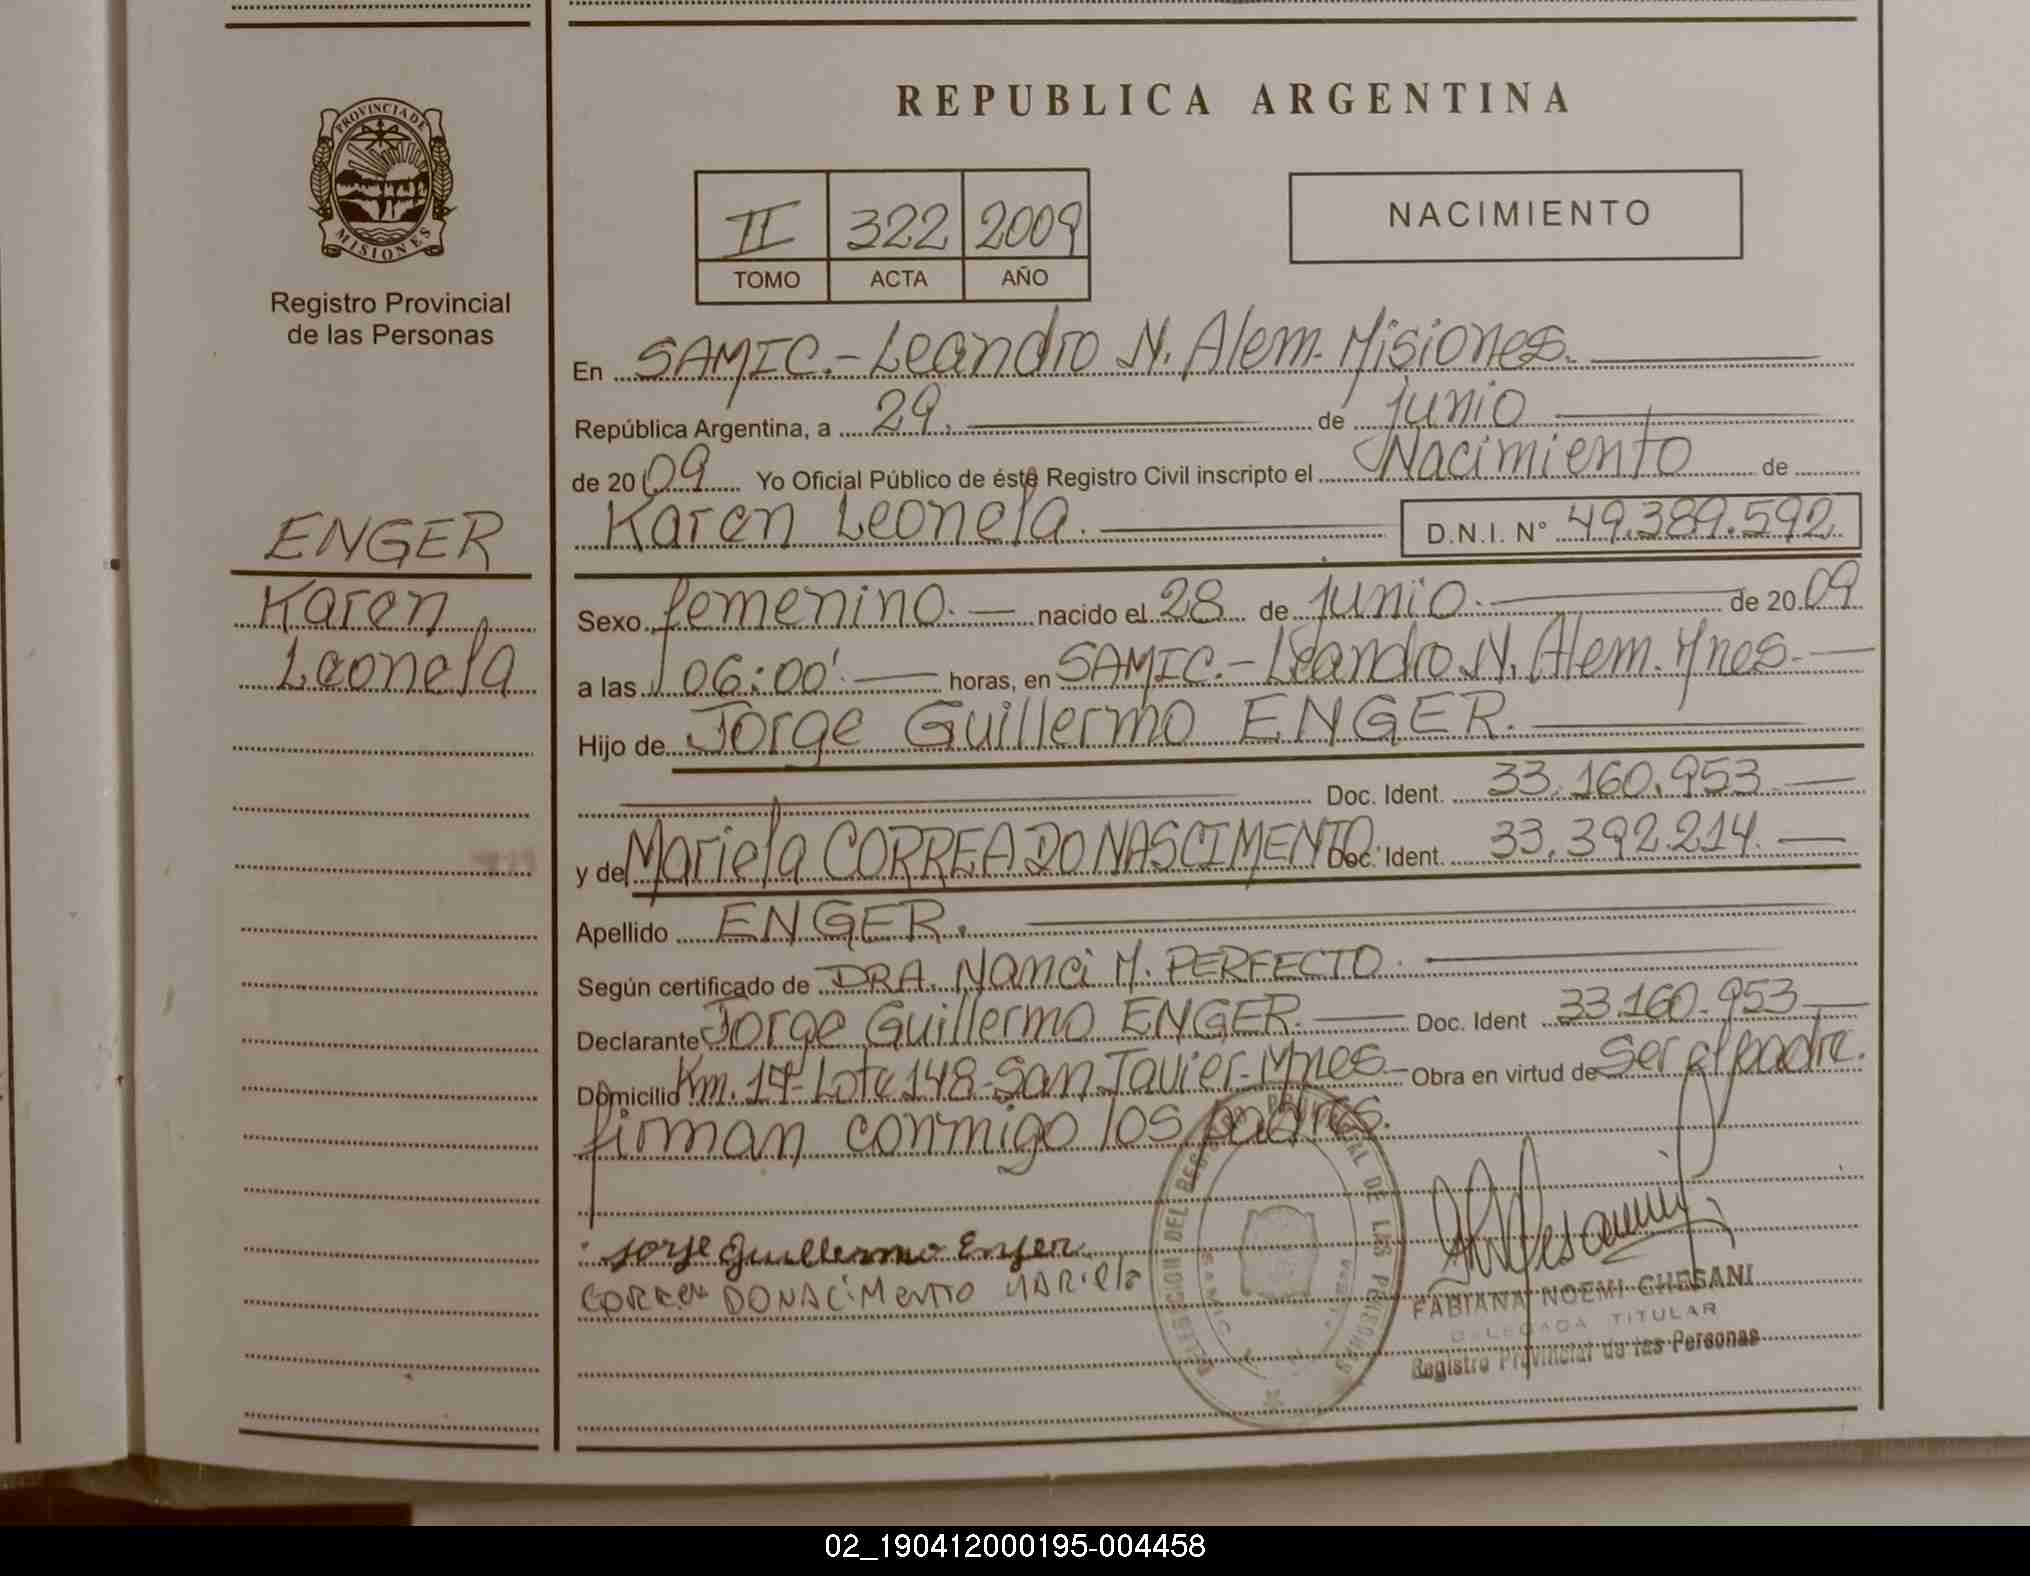 PROVINCIA DE
MISIONES
Registro Provincial
de las Personas
ENGER
Karen
Leonela
REPUBLICA ARGENTINA
II 322 2009
TOMO ACTA AÑO
NACIMIENTO
En SAMIC.- Leandro N. Alem. Misiones.
República Argentina, a 29. de junio
de 2009 Yo Oficial Público de éste Registro Civil inscripto el Nacimiento de
Karen Leonela. D.N.I. Nº 49.389.592
Sexo femenino. nacido el 28 de junio. de 2009
a las 06:00'. horas, en SAMIC.- Leandro N. Alem. Mnes.
Hijo de Jorge Guillermo ENGER.
Doc. Ident. 33.160.953
y de Mariela CORREA DO NASCIMENTO. Doc. Ident. 33.392.214.
Apellido ENGER.
Según certificado de DRA. Nanci M. PERFECTO.
Declarante Jorge Guillermo ENGER. Doc. Ident 33.160.953
Domicilio Km. 14- Lote 148- San Javier- Mnes. Obra en virtud de Ser el padre.
firman conmigo los padres.
Jorge Guillermo Enger
CORREA DONACIMENTO MARIELA
DELEGACION DEL REGISTRO PROVINCIAL DE LAS PERSONAS
SAMIC
FABIANA NOEMI CHESANI
DELEGADA TITULAR
Registro Provincial de las Personas
02_190412000195-004458